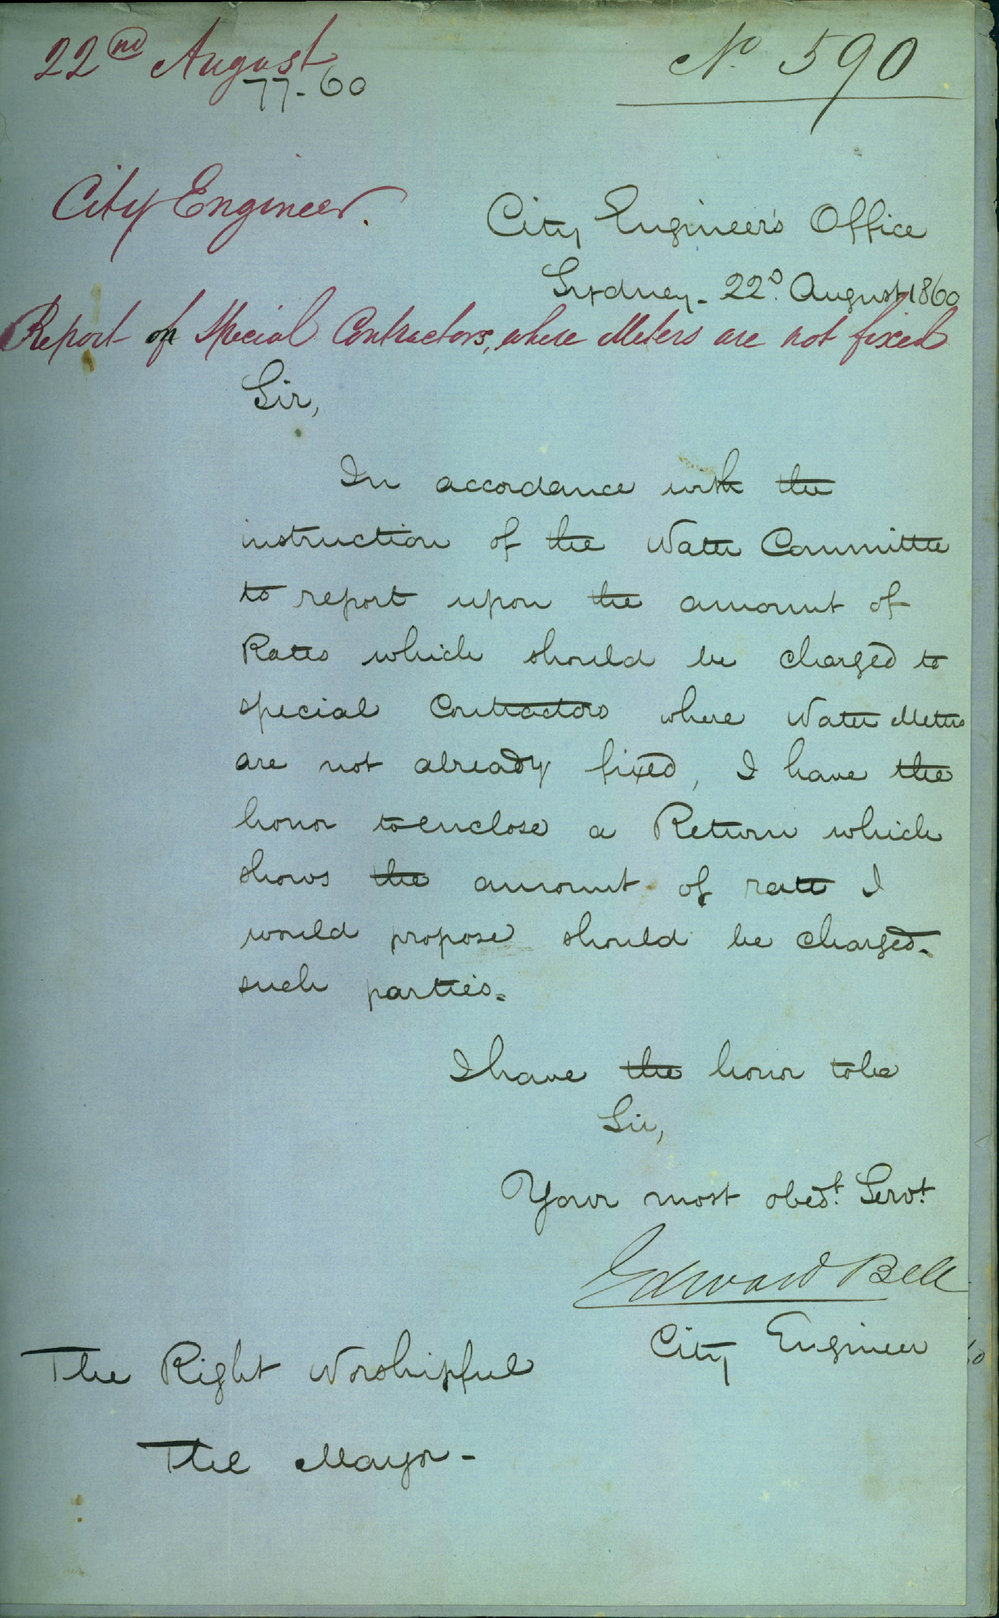 22nd August
77-60
No 590
City Engineer.
City Engineer's Office
Sydney - 22d. August 1860
Report of Special Contractors, where Meters are not fixed
Sir,
In accordance with the
instruction of the Water Committee
to report upon the amount of
Rates which should be charged to
special Contractors where Water Meters
are not already fixed, I have the
honor to enclose a Return which
shows the amount of rate I
would propose should be charged
such parties.
I have the honor to be
Sir,
Your most obedt. Servt.
Edward Bell
City Engineer
The Right Worshipful
The Mayor -